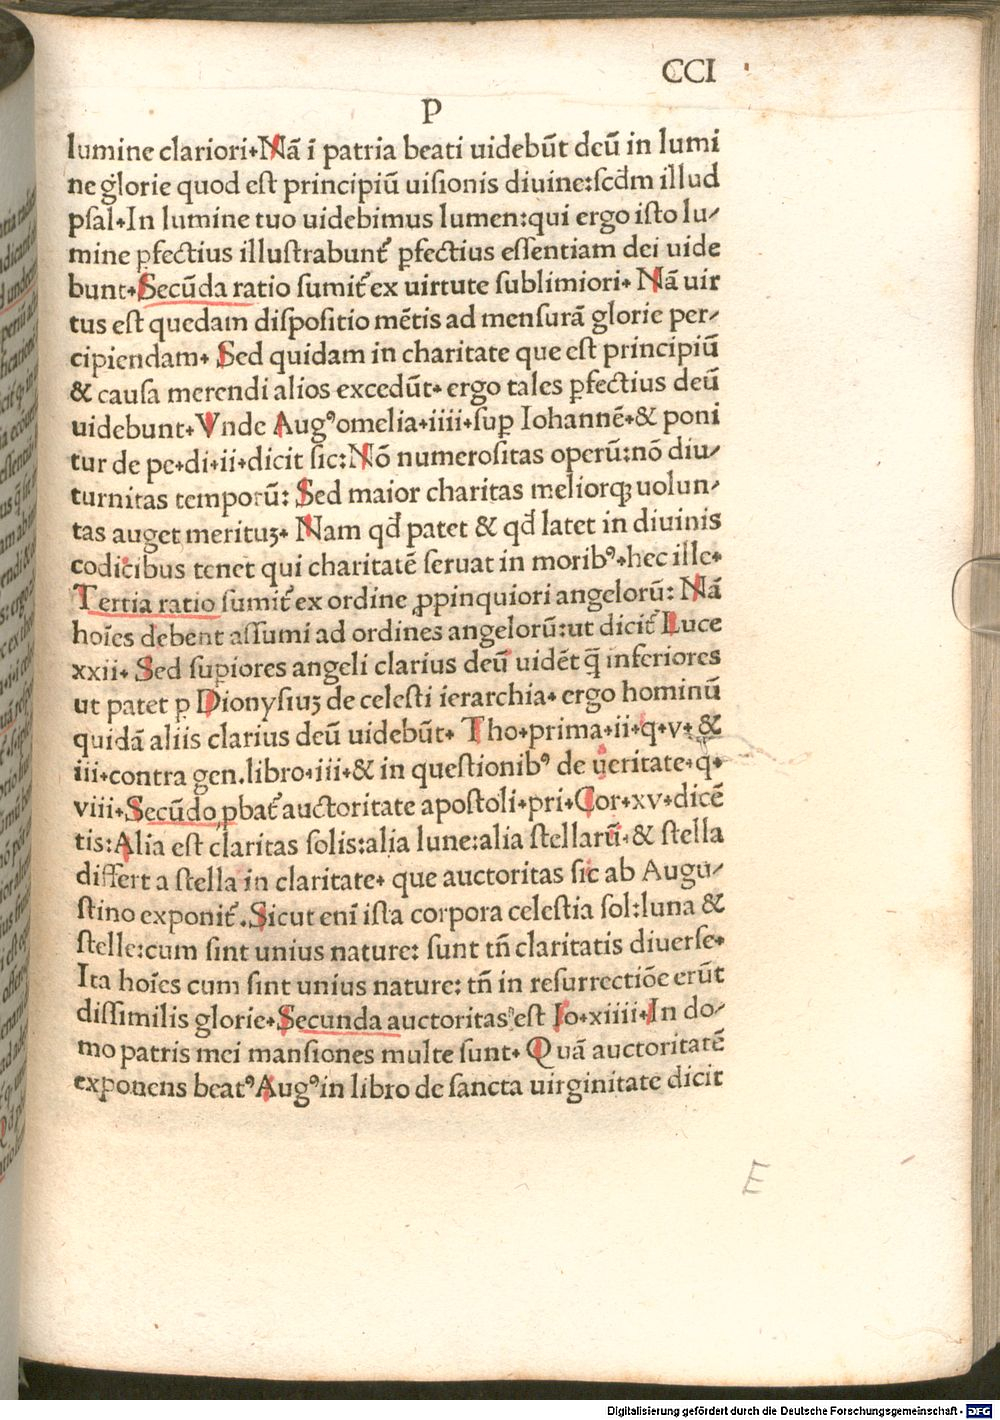 CCI
P
lumine clariori.Nā ī patria beati uidebūt deū in lumi
ne glorie quod est principiū uisionis diuine:scdm illud
psal.In lumine tuo uidebimus lumen:qui ergo isto lu-
mine ꝑfectius illustrabunt᷑ ꝑfectius essentiam dei uide
bunt.Secūda ratio sumit᷑ ex uirtute sublimiori. Nā uir
tus est quedam dispositio mētis ad mensurā glorie per-
cipiendam. Sed quidam in charitate que est principiū
& causa merendi alios excedūt. ergo tales ꝑfectius deū
uidebunt.Vnde Augꝰ omelia.iiii.suꝑ Iohannē.& poni
tur de pe.di.ii.dicit sic:Nō numerositas operū:nō diu-
turnitas temporū: Sed maior charitas meliorqꝫ uolun-
tas auget merituꝫ. Nam qđ patet & qđ latet in diuinis
codicibus tenet qui charitatē seruat in moribꝰ.hec ille.
Tertia ratio sumit᷑ ex ordine ꝓpinquiori angelorū: Nā
hoīes debent assumi ad ordines angelorū:ut dicit᷑ Luce
xxii. Sed suꝑiores angeli clarius deū uidēt q̄ inferiores
ut patet ꝑ Dionysiuꝫ de celesti ierarchia. ergo hominū
quidā aliis clarius deū uidebūt. Tho.prima.ii.q.v. &
iii.contra gen.libro.iii.& in questionibꝰ de ueritate.q.
viii.Secūdo ꝓbat᷑ auctoritate apostoli.pri.Cor.xv.dicē
tis:Alia est claritas solis:alia lune:alia stellarū.& stella
differt a stella in claritate. que auctoritas sic ab Augu-
stino exponit᷑.Sicut enī ista corpora celestia sol:luna &
stelle:cum sint unius nature: sunt tn̄ claritatis diuerse.
Ita hoīes cum sint unius nature: tn̄ in resurrectiōe erūt
dissimilis glorie.Secunda auctoritas est Io.xiiii.In do-
mo patris mei mansiones multe sunt. Quā auctoritatē
exponens beatꝰ Augꝰ in libro de sancta uirginitate dicit
E
Digitalisierung gefördert durch die Deutsche Forschungsgemeinschaft - DFG